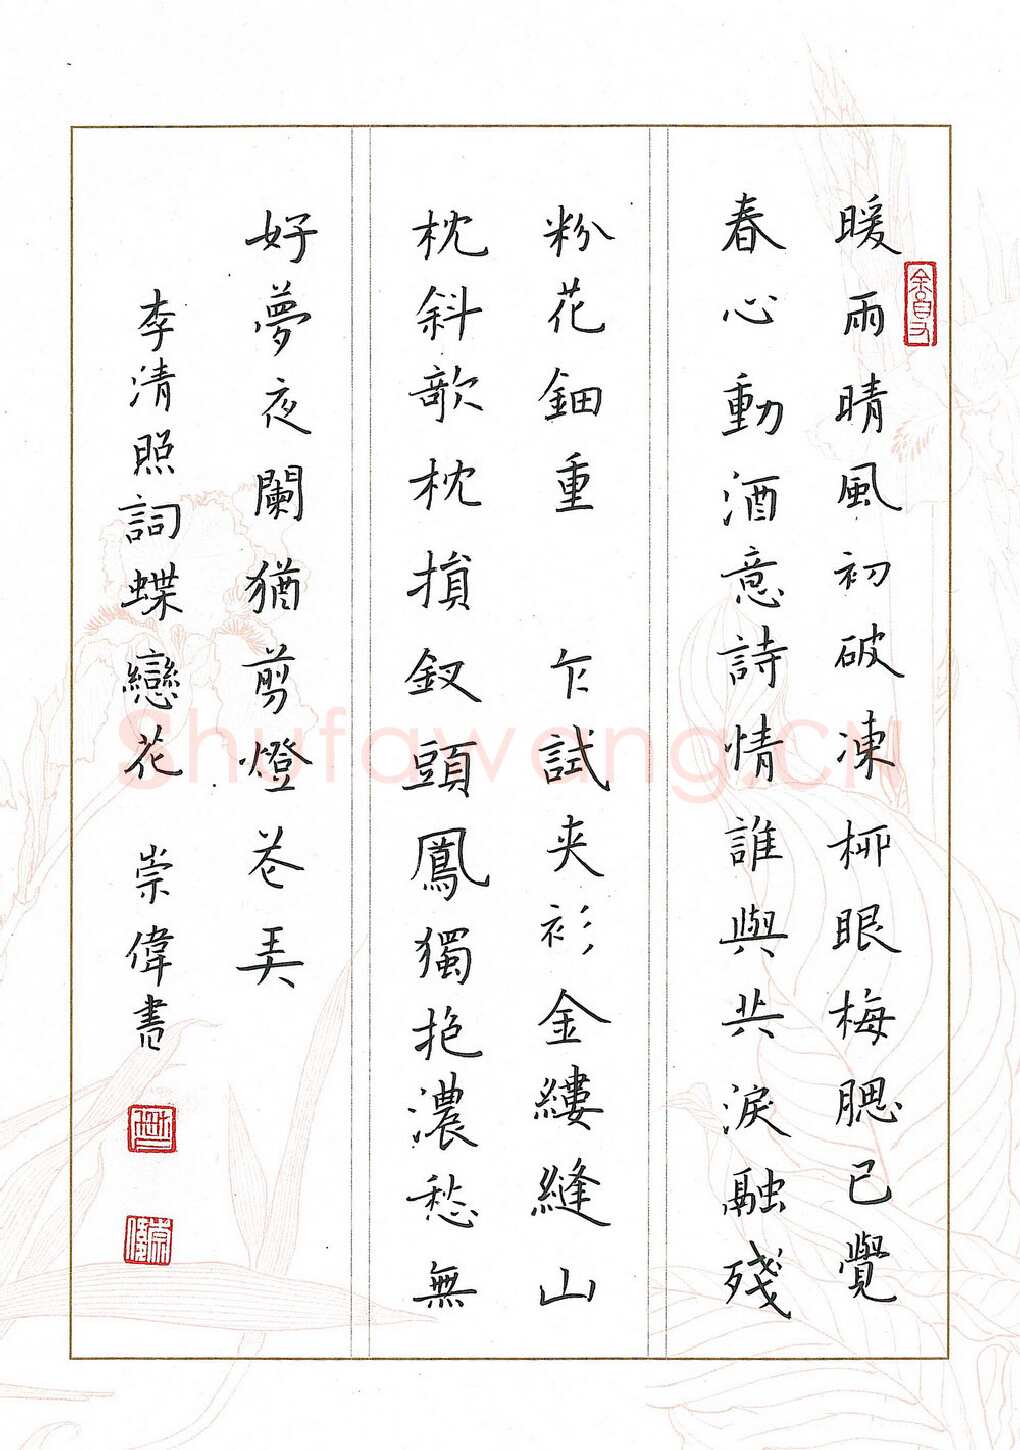 暖雨晴風初破凍柳眼梅腮已覺
春心動酒意詩情誰與共淚融殘
粉花鈿重 乍試夾衫金縷縫山
枕斜欹枕損釵頭鳳獨抱濃愁無
好夢夜闌猶剪燈花弄
李清照詞蝶戀花 崇偉書
Shufawang.CN